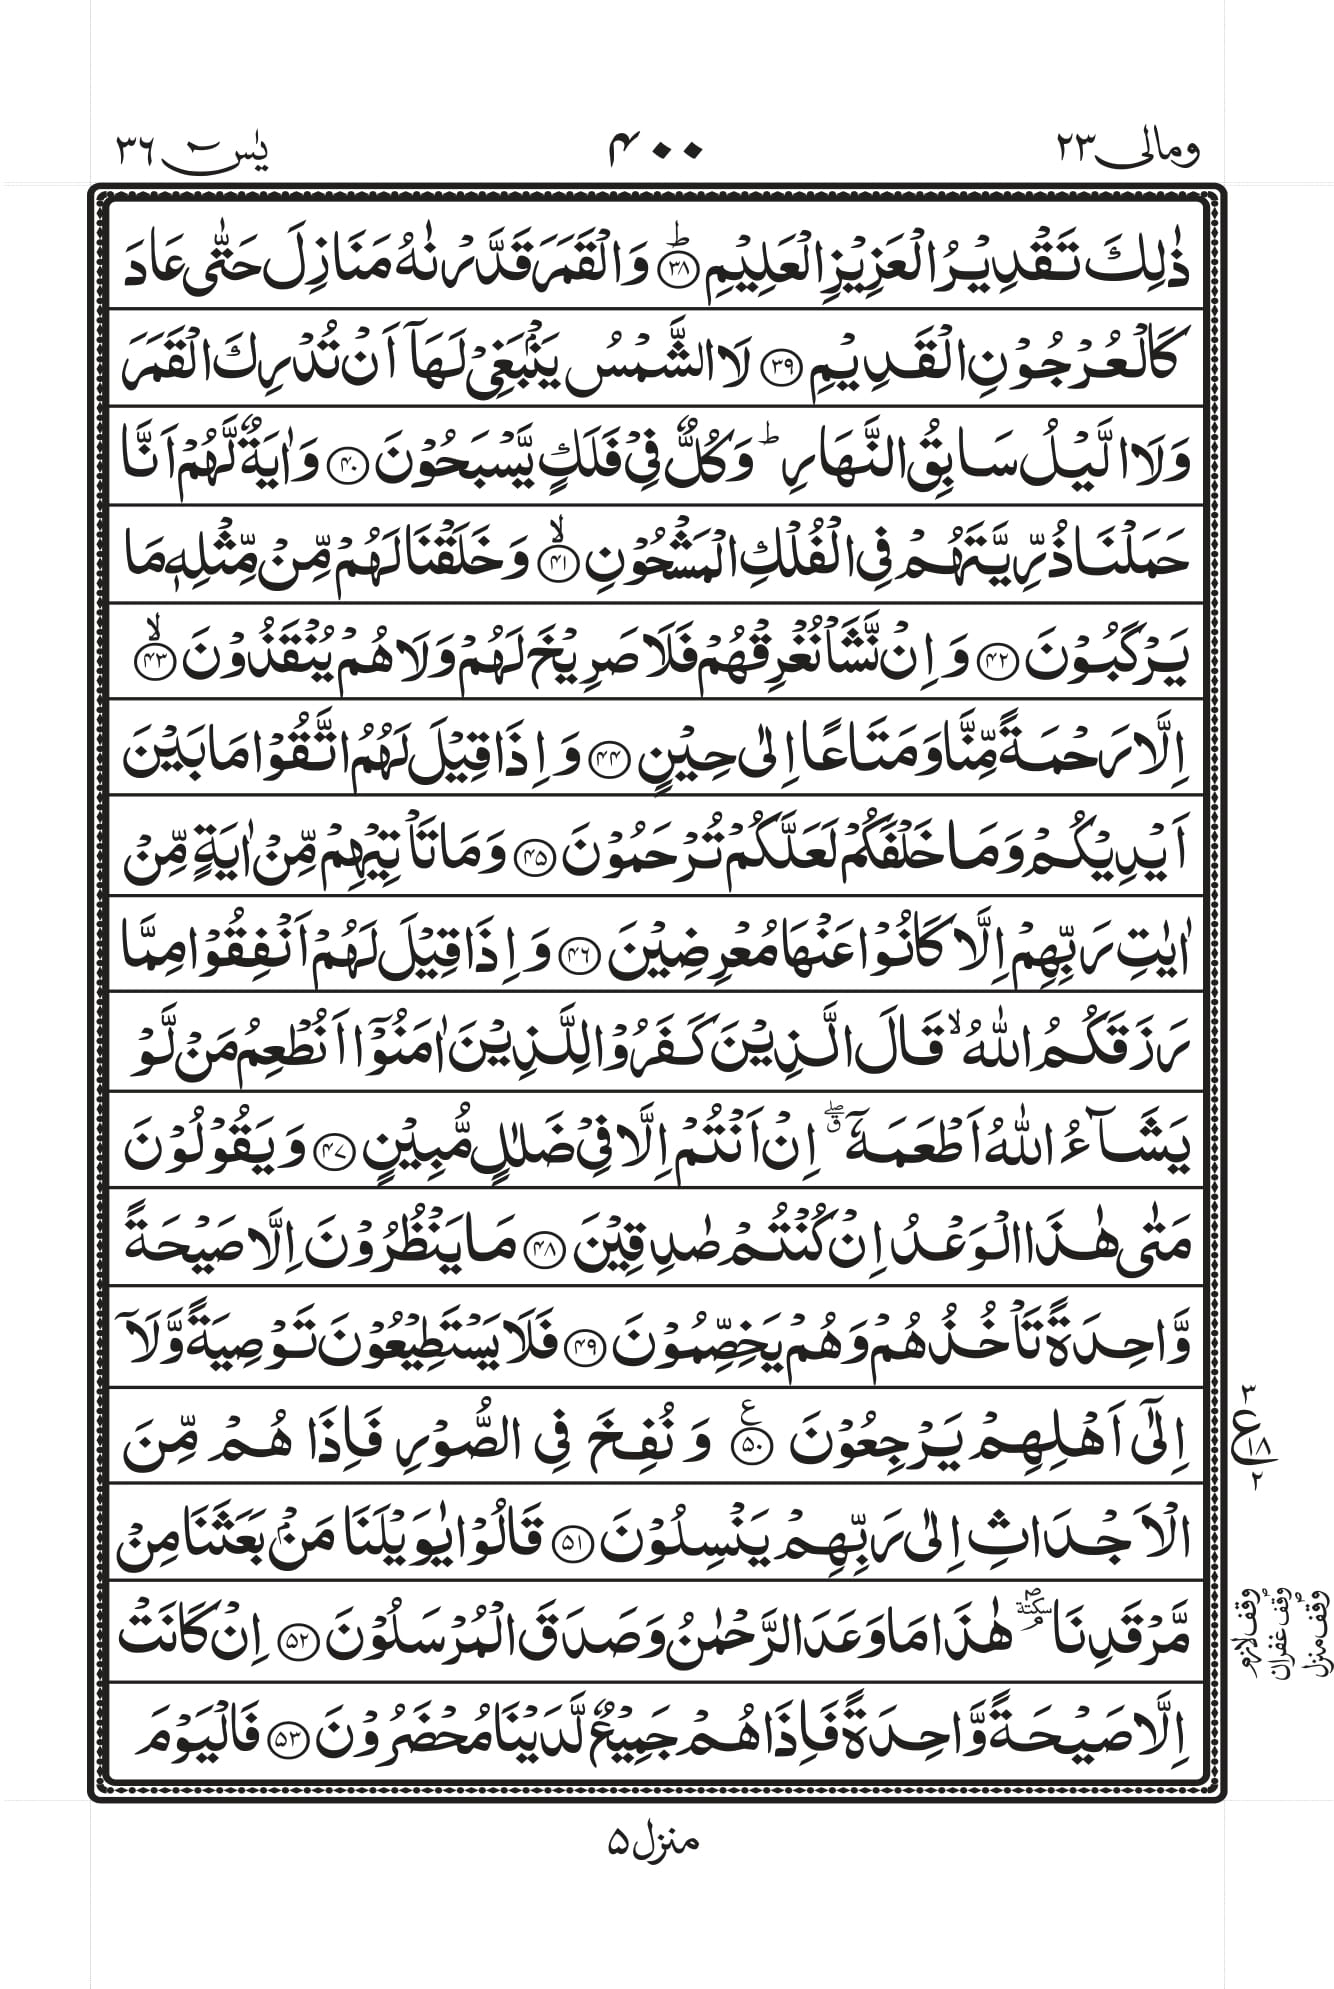 ومالی ۲۳ ۴۰۰ یٰسٓ ۳۶
ذٰلِكَ تَقْدِيْرُ الْعَزِيْزِ الْعَلِيْمِ ؕ﴿۳۸﴾ وَالْقَمَرَ قَدَّرْنٰهُ مَنَازِلَ حَتّٰى عَادَ
كَالْعُرْجُوْنِ الْقَدِيْمِ ﴿۳۹﴾ لَا الشَّمْسُ يَنْۢبَغِيْ لَهَاۤ اَنْ تُدْرِكَ الْقَمَرَ
وَلَا الَّيْلُ سَابِقُ النَّهَارِ ؕ وَكُلٌّ فِيْ فَلَكٍ يَّسْبَحُوْنَ ﴿۴۰﴾ وَاٰيَةٌ لَّهُمْ اَنَّا
حَمَلْنَا ذُرِّيَّتَهُمْ فِى الْفُلْكِ الْمَشْحُوْنِ ۙ﴿۴۱﴾ وَخَلَقْنَا لَهُمْ مِّنْ مِّثْلِهٖ مَا
يَرْكَبُوْنَ ﴿۴۲﴾ وَاِنْ نَّشَاْ نُغْرِقْهُمْ فَلَا صَرِيْخَ لَهُمْ وَلَا هُمْ يُنْقَذُوْنَ ۙ﴿۴۳﴾
اِلَّا رَحْمَةً مِّنَّا وَمَتَاعًا اِلٰى حِيْنٍ ﴿۴۴﴾ وَاِذَا قِيْلَ لَهُمُ اتَّقُوْا مَا بَيْنَ
اَيْدِيْكُمْ وَمَا خَلْفَكُمْ لَعَلَّكُمْ تُرْحَمُوْنَ ﴿۴۵﴾ وَمَا تَاْتِيْهِمْ مِّنْ اٰيَةٍ مِّنْ
اٰيٰتِ رَبِّهِمْ اِلَّا كَانُوْا عَنْهَا مُعْرِضِيْنَ ﴿۴۶﴾ وَاِذَا قِيْلَ لَهُمْ اَنْفِقُوْا مِمَّا
رَزَقَكُمُ اللّٰهُ ۙ قَالَ الَّذِيْنَ كَفَرُوْا لِلَّذِيْنَ اٰمَنُوْۤا اَنُطْعِمُ مَنْ لَّوْ
يَشَآءُ اللّٰهُ اَطْعَمَهٗۤ ۖق اِنْ اَنْتُمْ اِلَّا فِيْ ضَلٰلٍ مُّبِيْنٍ ﴿۴۷﴾ وَيَقُوْلُوْنَ
مَتٰى هٰذَا الْوَعْدُ اِنْ كُنْتُمْ صٰدِقِيْنَ ﴿۴۸﴾ مَا يَنْظُرُوْنَ اِلَّا صَيْحَةً
وَّاحِدَةً تَاْخُذُهُمْ وَهُمْ يَخِصِّمُوْنَ ﴿۴۹﴾ فَلَا يَسْتَطِيْعُوْنَ تَوْصِيَةً وَّلَاۤ
اِلٰۤى اَهْلِهِمْ يَرْجِعُوْنَ ﴿۵۰﴾ع وَنُفِخَ فِى الصُّوْرِ فَاِذَا هُمْ مِّنَ
۳
ع
۱۸
۲
الْاَجْدَاثِ اِلٰى رَبِّهِمْ يَنْسِلُوْنَ ﴿۵۱﴾ قَالُوْا يٰوَيْلَنَا مَنْۢ بَعَثَنَا مِنْ
مَّرْقَدِنَا ۘ سكتة هٰذَا مَا وَعَدَ الرَّحْمٰنُ وَصَدَقَ الْمُرْسَلُوْنَ ﴿۵۲﴾ اِنْ كَانَتْ
وقف لازم
وقف غفران
وقف منزل
اِلَّا صَيْحَةً وَّاحِدَةً فَاِذَا هُمْ جَمِيْعٌ لَّدَيْنَا مُحْضَرُوْنَ ﴿۵۳﴾ فَالْيَوْمَ
منزل ۵